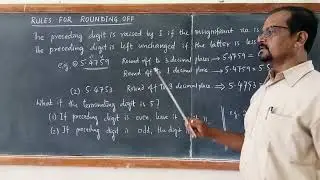 RULES FOR ROUNDING OFF
The preceding digit is raised by 1 if the insignificant no. is
The preceding digit is left unchanged if the latter is less
e.g. (1) 5.4759 Round off to 3 decimal places → 5.4759 =
Round off 1 decimal place → 5.4759 =
(2) 5.4753 Round off to 3 decimal place, → 5.4753 =
What if the terminating digit is 5?
(1) If preceding digit is even, leave it
(2) If preceding digit is odd, the digit